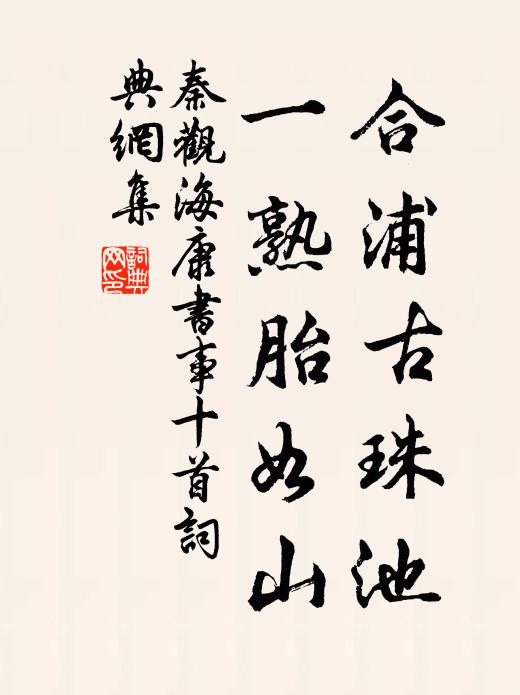 合浦古珠池
一熟胎如山
秦觀海康書事十首詞
典網集
詞典网印